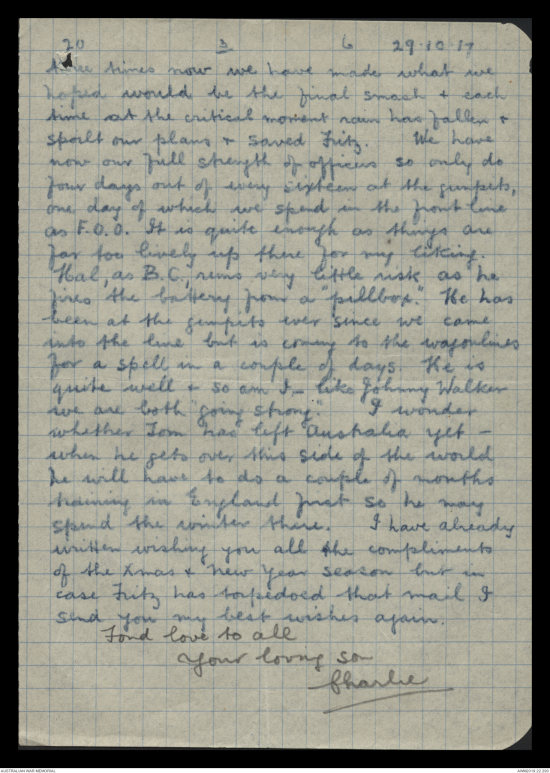 20 3 6 29-10-17
three times now we have made what we
hoped would be the final smach & each
time at the critical moment rain has fallen &
spoilt our plans & saved Fritz. We have
now our full strength of officers so only do
four days out of every sixteen at the gunpits,
one day of which we spend in the front line
as F.O.O. It is quite enough as things are
far too lively up there for my liking.
Hal, as B.C., runs very little risk as he
fires the battery from a "pillbox." He has
been at the gunpits ever since we came
into the line but is coming to the wagonlines
for a spell in a couple of days. He is
quite well & so am I – like Johnny Walker
we are both "going strong". I wonder
whether Tom has left Australia yet –
when he gets over this side of the world
he will have to do a couple of months
training in England first so he may
spend the winter there. I have already
written wishing you all the compliments
of the Xmas & New Year season but in
case Fritz has torpedoed that mail I
send you my best wishes again.
Fond love to all
Your loving son
Charlie
AUSTRALIAN WAR MEMORIAL